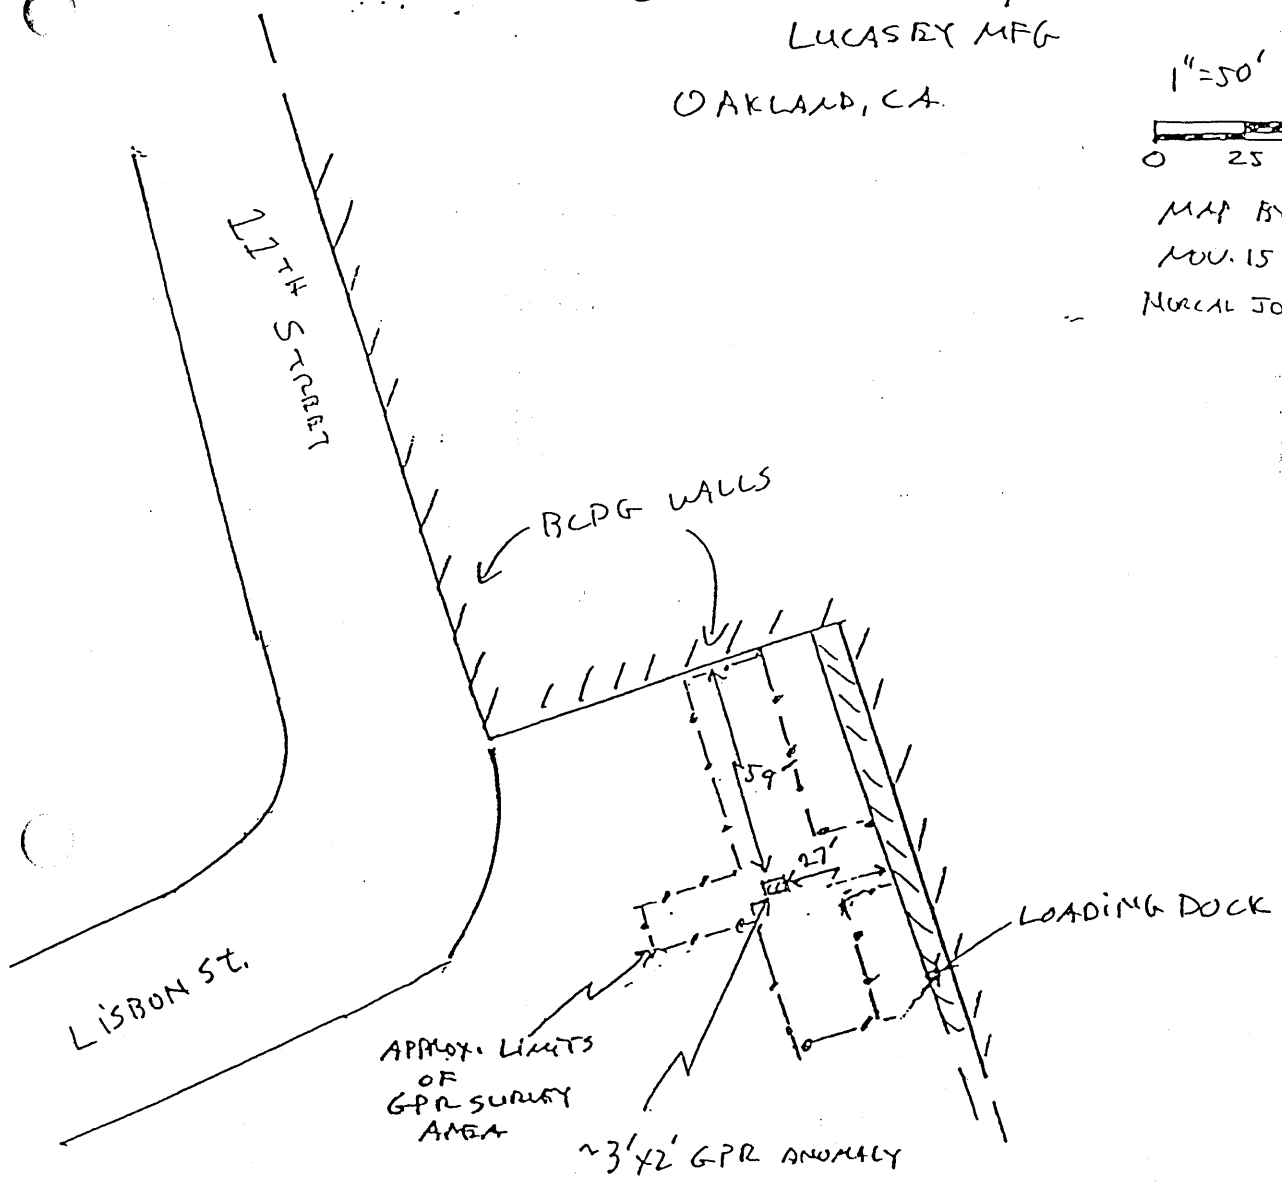 LUCASEY MFG
OAKLAND, CA.
1"=50'
0 25
MAP BY
NOV. 15
NORCAL JO
STREET
BLDG WALLS
59'
27'
LOADING DOCK
LISBON St.
APPROX. LIMITS
OF
GPR SURVEY
AREA
~3'X2' GPR ANOMALY